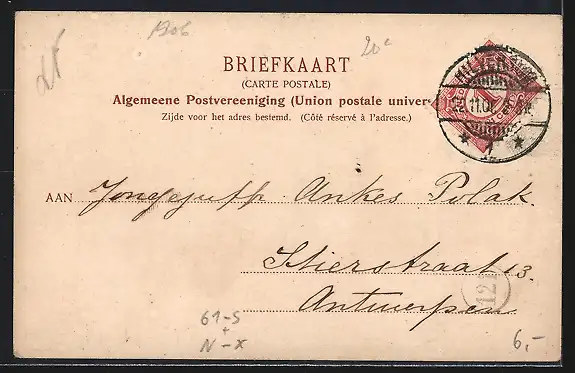 1906
20c
BRIEFKAART
(CARTE POSTALE)
Algemeene Postvereeniging (Union postale univer
Zijde voor het adres bestemd. (Côté réservé à l'adresse.)
22.11.01
AAN Jongejuffr. Ankes Polak.
Stierstraat 13.
Antwerpen
12
61-S
+
N-X
6,-